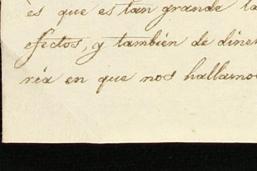 ès que es tan grande la
efectos, y también de diner
ria en que nos hallamo